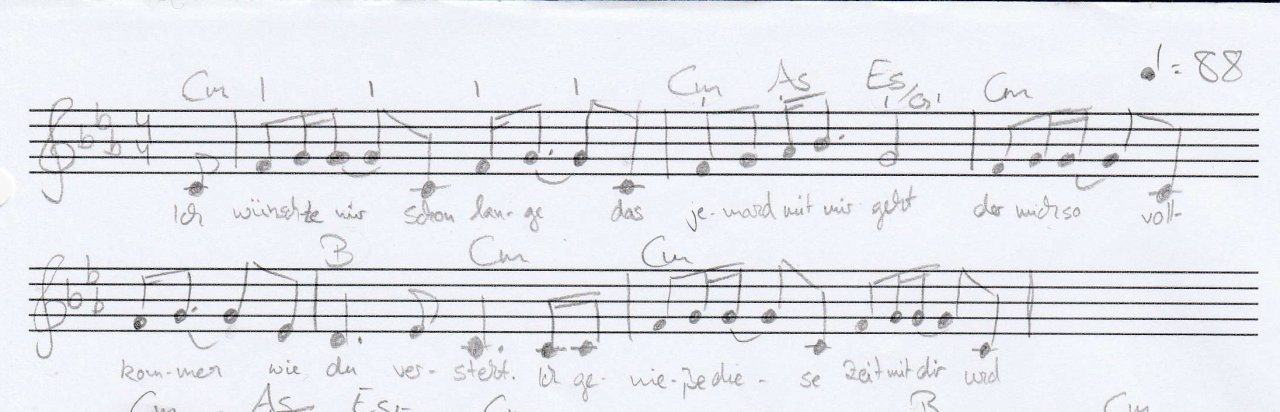 ♩= 88
Cm Cm As Es/G Cm
4/4
Ich wünsch-te mir schon lan-ge das je-mand mit mir geht der mich so voll-
B Cm Cm
kom-men wie du ver-steht. Ich ge-nie-ße die-se Zeit mit dir und
Cm As Es B Cm